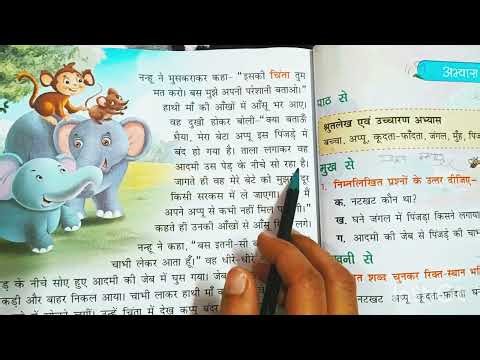 नन्हू ने मुसकराकर कहा- "इसकी चिंता तुम
मत करो। बस मुझे अपनी परेशानी बताओ।"
हाथी माँ की आँखों में आँसू भर आए।
वह दुखी होकर बोली- "क्या बताऊँ
भैया, मेरा बेटा अप्पू इस पिंजड़े में
बंद हो गया है। ताला लगाकर वह
आदमी उस पेड़ के नीचे सो रहा है।
जागते ही वह मेरे बेटे को मुझसे दूर
किसी सरकस में ले जाएगा। मैं
अपने अप्पू से कभी नहीं मिल
कहते ही उनकी आँखों से आँसू लगे।
नन्हू ने कहा, "बस इतनी-सी
चाभी लेकर आता हूँ।" वह धीरे-धीरे
के नीचे सोए हुए आदमी की जेब में घुस गया।
और बाहर निकल आया। चाभी लाकर हाथी माँ
उन्हें चिंता में देख कप्पू बंदर
अभ्यास
पाठ से
श्रुतलेख एवं उच्चारण अभ्यास
बच्चा, अप्पू, कूदता-फाँदता, जंगल, मुँह,
मुख से
१. निम्नलिखित प्रश्नों के उत्तर दीजिए-
क. नटखट कौन था?
ख. घने जंगल में पिंजड़ा किसने लगाया
ग. आदमी की जेब से पिंजड़े की
से
शब्द चुनकर रिक्त-स्थान
नटखट अप्पू कूदता-फाँदता